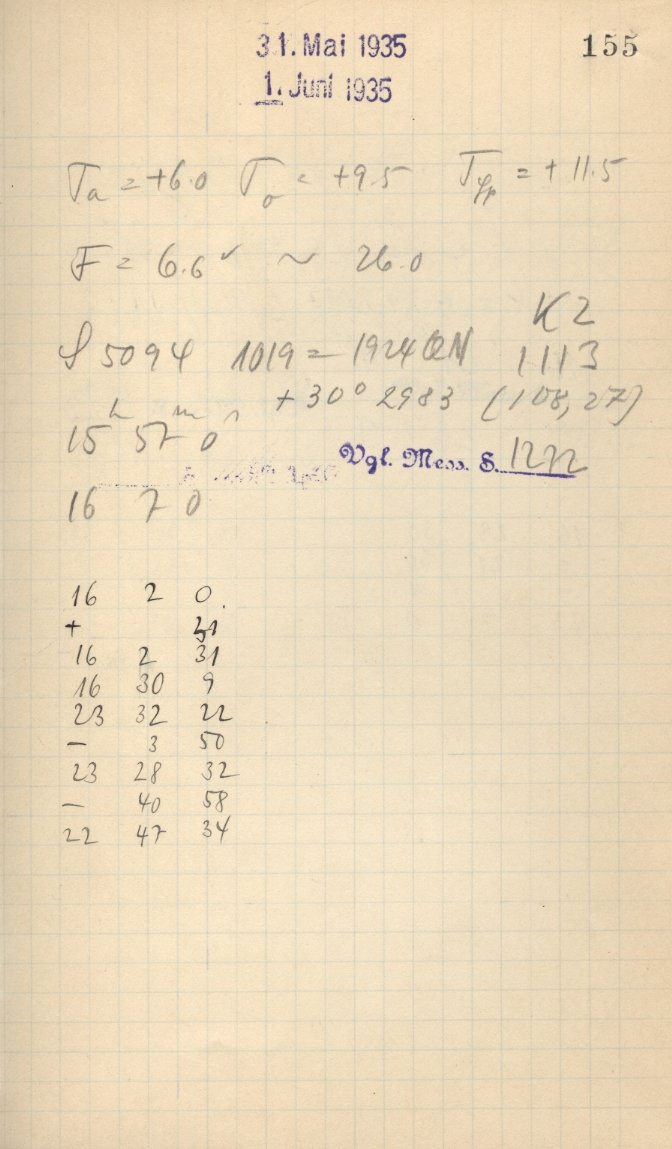 31. Mai 1935 155
1. Juni 1935
Ta = +6.0 To = +9.5 Typ = +11.5
F = 6.6 ~ 26.0
K2
S 5094 1019 = 1924 QN 1113
+30° 2983 (108,27)
15h 57m 0s
Vgl. Mess. S. 1272
16 7 0
16 2 0.
+ 31
16 2 31
16 30 9
23 32 22
– 3 50
23 28 32
– 40 58
22 47 34